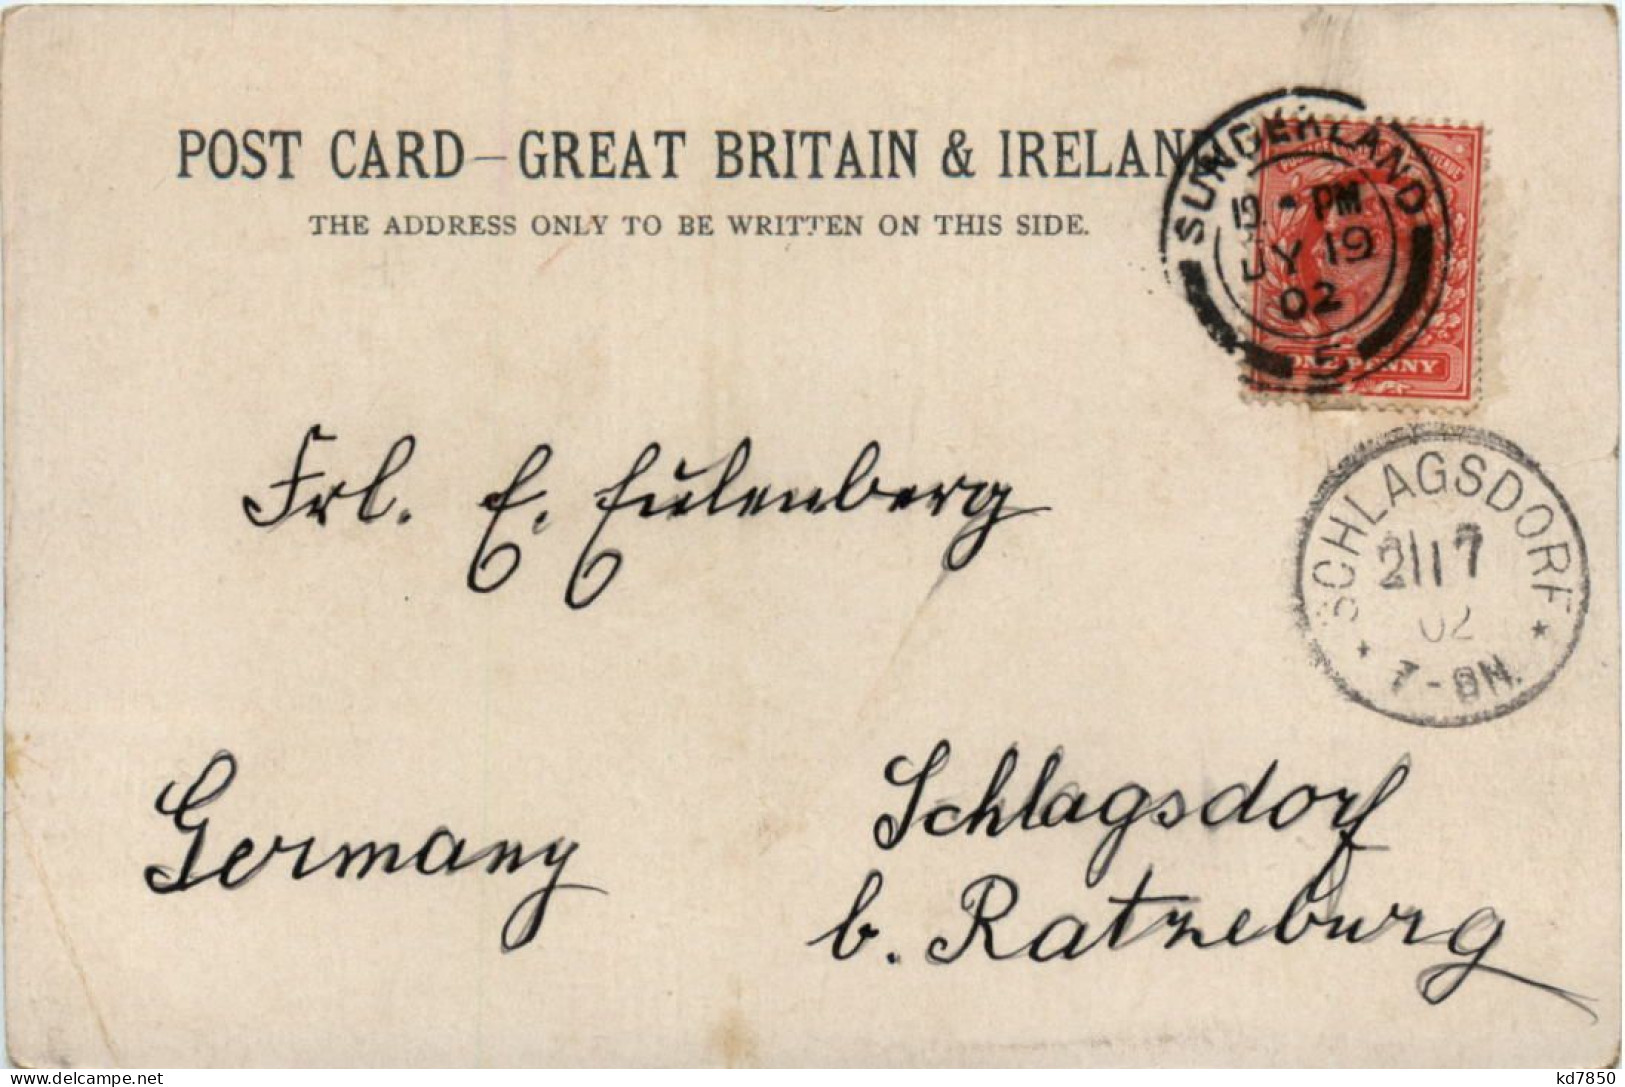 POST CARD—GREAT BRITAIN & IRELAND
THE ADDRESS ONLY TO BE WRITTEN ON THIS SIDE.
SUNDERLAND
PM
JY 19
02
5
ONE PENNY
SCHLAGSDORF
21 7
02
* 7-8N. *
Frl. E. Eulenberg
Germany
Schlagsdorf
b. Ratzeburg
delcampe.net
kd7850